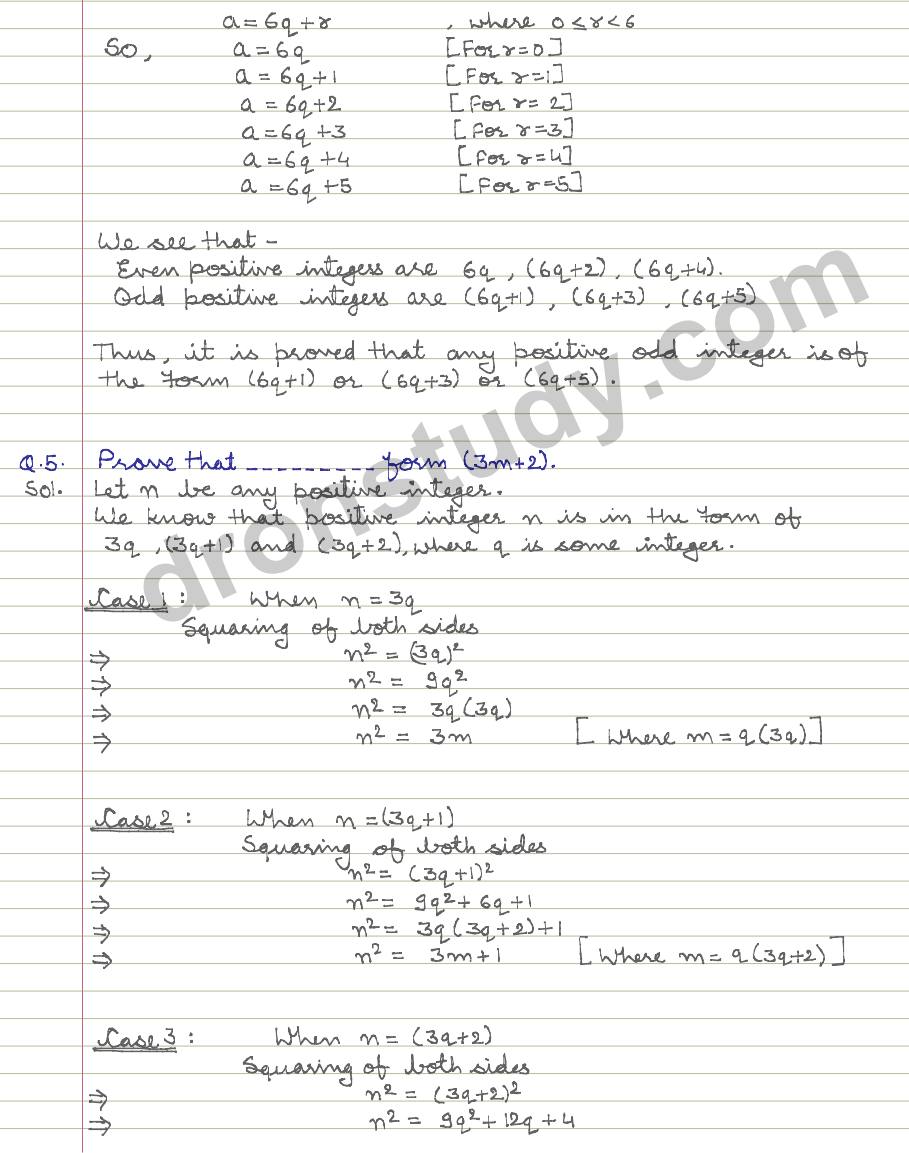 a = 6q + r , where 0 ≤ r < 6
So, a = 6q [For r=0]
a = 6q+1 [For r=1]
a = 6q+2 [For r= 2]
a = 6q +3 [For r=3]
a = 6q +4 [For r=4]
a = 6q +5 [For r=5]
We see that –
Even positive integers are 6q , (6q+2), (6q+4).
Odd positive integers are (6q+1) , (6q+3) , (6q+5)
Thus, it is proved that any positive odd integer is of
the form (6q+1) or (6q+3) or (6q+5).
Q.5. Prove that _ _ _ _ _ _ _ _ _ form (3m+2).
Sol. Let n be any positive integer.
We know that positive integer n is in the form of
3q , (3q+1) and (3q+2), where q is some integer.
Case 1 : When n = 3q
Squaring of both sides
⇒ n² = (3q)²
⇒ n² = 9q²
⇒ n² = 3q(3q)
⇒ n² = 3m [Where m = q(3q)]
Case 2 : When n = (3q+1)
Squaring of both sides
⇒ n² = (3q+1)²
⇒ n² = 9q² + 6q + 1
⇒ n² = 3q(3q+2)+1
⇒ n² = 3m+1 [Where m = q(3q+2)]
Case 3 : When n = (3q+2)
Squaring of both sides
⇒ n² = (3q+2)²
⇒ n² = 9q² + 12q + 4
dronstudy.com